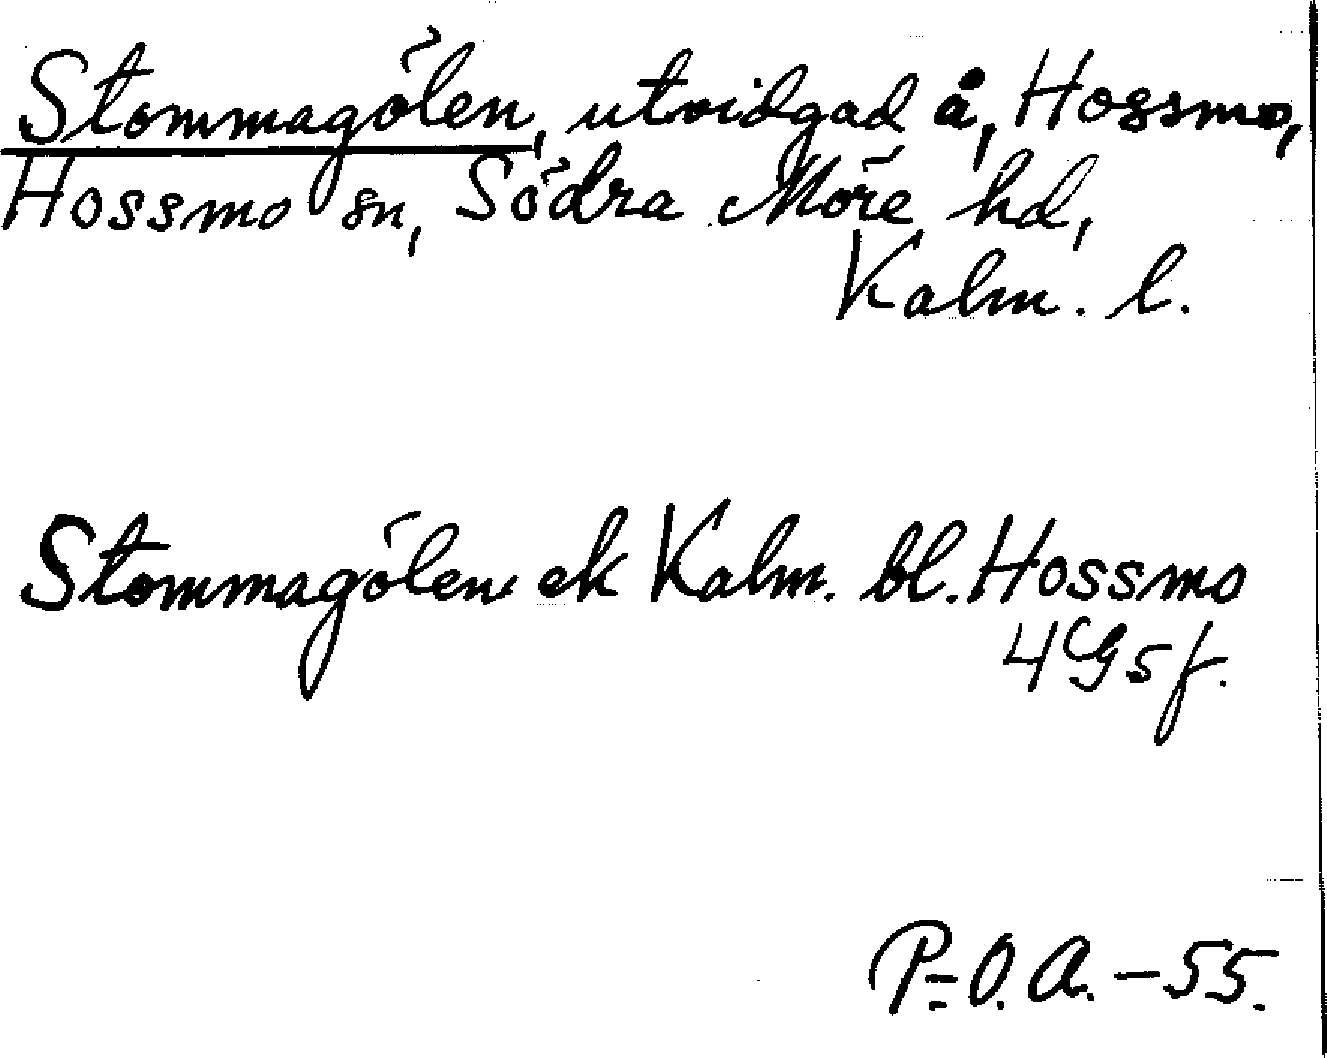 Stommagölen, utvidgad å, Hossmo,
Hossmo sn, Södra Möre hd,
Kalm. l.
Stommagölen ek Kalm. bl. Hossmo
4G5f.
P.-O.A.-55.